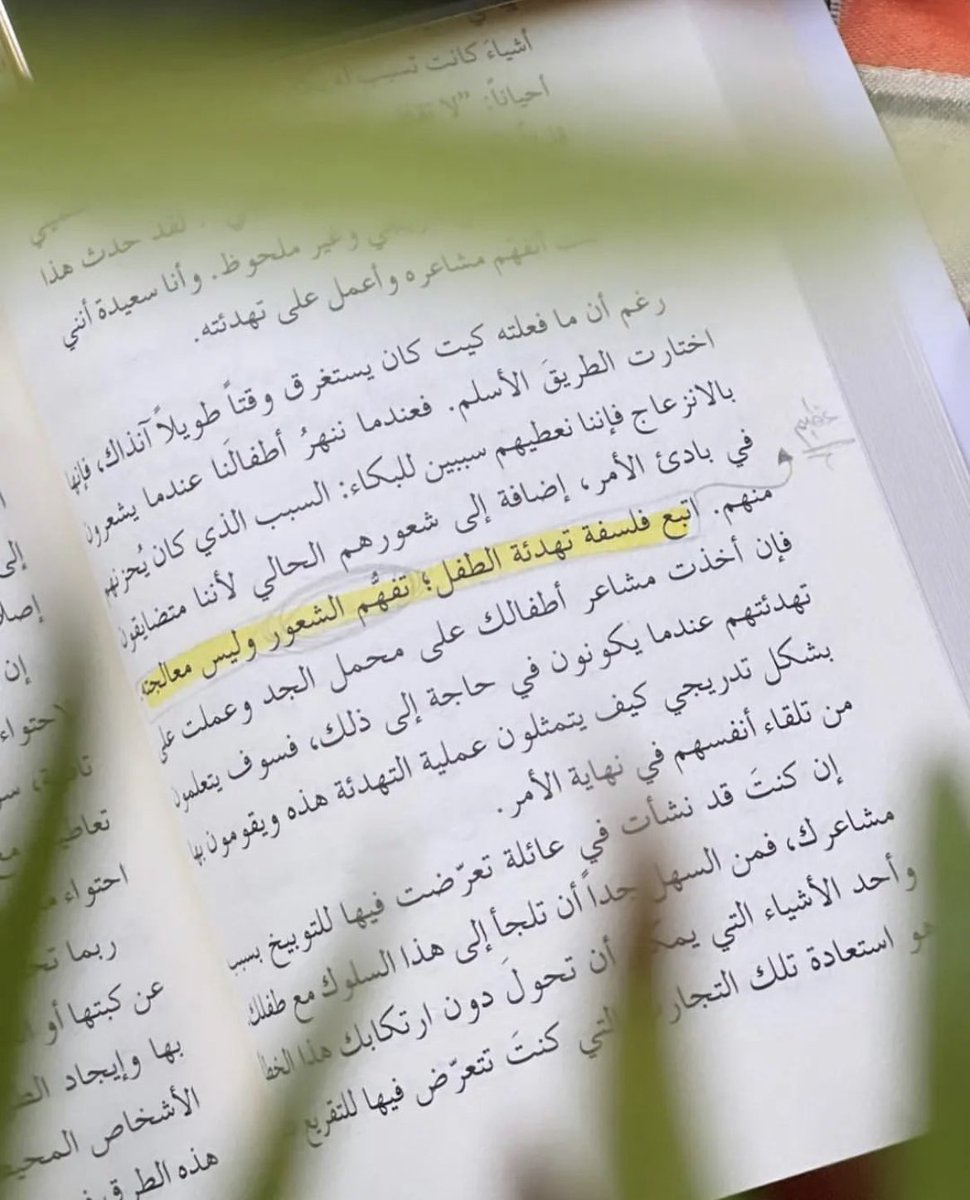 أشياءَ كانت تسبب
أحياناً: "لا
وغير ملحوظ. لقد حدث هذا
أتفهم مشاعره وأعمل على تهدئته. وأنا سعيدة أنني
رغم أن ما فعلته كيت كان يستغرق وقتاً طويلاً آنذاك، فإنها
اختارت الطريقَ الأسلم. فعندما ننهرُ أطفالَنا عندما يشعرون
بالانزعاج فإننا نعطيهم سببين للبكاء: السبب الذي كان يُحزنهم
في بادئ الأمر، إضافة إلى شعورهم الحالي لأننا متضايقون
منهم. اتبع فلسفة تهدئة الطفل؛ تفهُّم الشعور وليس معالجته
فإن أخذت مشاعر أطفالك على محمل الجد وعملت على
تهدئتهم عندما يكونون في حاجة إلى ذلك، فسوف يتعلمون
بشكل تدريجي كيف يتمثلون عملية التهدئة هذه ويقومون بها
من تلقاء أنفسهم في نهاية الأمر.
إن كنتَ قد نشأت في عائلة تعرّضت فيها للتوبيخ بسبب
مشاعرك، فمن السهل جداً أن تلجأ إلى هذا السلوك مع طفلك.
وأحد الأشياء التي أن تحولَ دون ارتكابك هذا الخطأ
هو استعادة تلك التجارب التي كنتَ تتعرّض فيها للتقريع
إلى
إن
احتواء
احتواء
ربما
عن كبتها أو
بها وإيجاد
الأشخاص
هذه الطرق